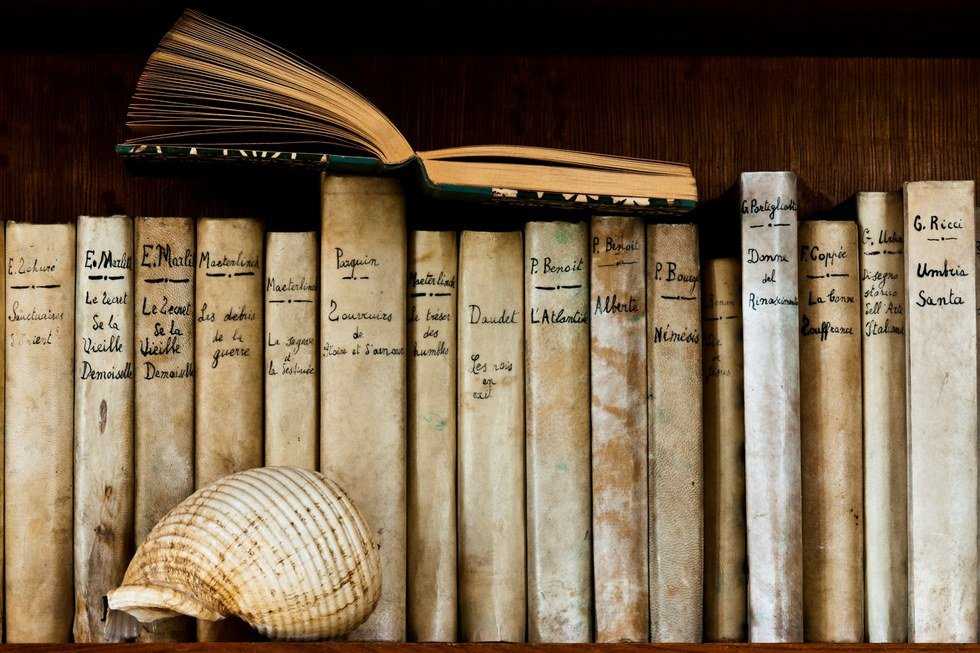 E.
Sanctuaires
d'Orient
E. Marlit
Le Secret
de la
Vieille
Demoiselle
E. Marlit
Le Secret
de la
Vieille
Demoiselle
Maeterlinck
Les debris
de la
guerre
Maeterlinck
La sagesse
et
la destinée
Souvenirs
de
Gloire et d'amour
Maeterlinck
Le tresor
des
humbles
Daudet
Les rois
en
exil
P. Benoit
L'Atlantide
P. Benoit
Alberte
P. Bourg
Némésis
Donne
del
Rinascimento
F. Coppée
La bonne
Souffrance
Disegno
storico
dell'Arte
Italiana
G. Ricci
Umbria
Santa